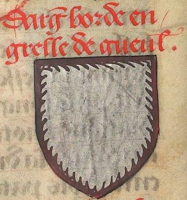 d'arg' bordé en
gresle de gueul'.